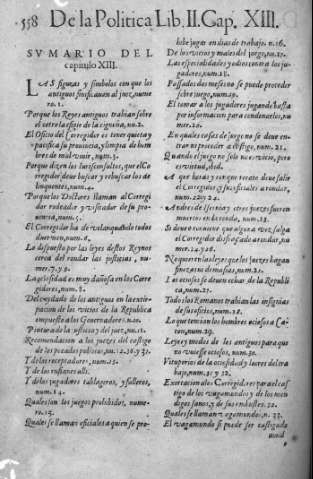 558 De la Politica Lib. II. Cap. XIII.
SVMARIO DEL
capitulo XIII.
LAS figuras y simbolos con que los
antiguos sinificauan al juez, nume
ro. 1.
Porque los Reyes antiguos trahian sobre
el cetro la efigie de la cigueña, nu. 2.
El Oficio del Corregidor es tener quieta y
pacifica su prouincia, y limpia de hom
bres de mal viuir, num. 3.
Porque dizen los Iurisconsultos, que el Co
rregidor deue buscar y rebuscar los de
linquentes, num. 4.
Porque los Doctores llaman al Corregi
dor rodeador y visitador de su pro
uincia, num. 5.
El Corregidor ha de velar quando todos
duermen, num. 6.
Lo dispuesto por las leyes destos Reynos
cerca del rondar las justicias, nu
mer. 7. y 9.
La es muy dañosa en los Corre
gidores, num. 8.
Del cuydado de los antiguos en la extir-
pacion de los vicios de la Republica
impuesto a los Gouernadores. n. 10.
Pintura de la justicia y del juez, nu. 11.
Recomendacion a los juezes del castigo
de los pecados publicos, nu. 12. 30. y 31.
De los receptadores, num. 13.
Y de los rufianes alli.
Y de los jugadores tablageros, y fulleros,
num. 14.
Quales son los juegos prohibidos, nume-
ro. 15.
Quales se llaman oficiales a quien se pro-
hibe jugar en dias de trabajo. n. 16.
De los vicios y males del juego, nu. 17.
Las especialidades y odios contra los ju-
gadores, num. 18.
Passados dos meses no se puede proceder
sobre juego, num. 19.
El tomar a los jugadores jugando basta
por informacion para condenarlos, nu
mer. 20.
En quales casos de juego no se deue en-
trar ni proceder a castigo, num. 21.
Quando el juego no solo no es vicio, pero
es virtud, ibid.
A que horas y con que recato deue salir
el Corregidor, y sus oficiales a rondar,
num. 22. y 24.
muertos en la ronda, num. 23.
Si deue o conuiene que alguna vez, salga
el Corregidor disfraçado a rondar, nu
mer. 24. y 26.
No quieren las leyes que los juezes hagan
finezas demasiadas, num. 25.
Los ociosos se deuen echar de la Republi-
ca, num. 27.
Todos los Romanos trahian las insignias
de sus oficios, num. 28.
Lo que tenian los hombres ociosos a Ca-
ton, num. 29.
Leyes y modos de los antiguos para que
no vuiesse ociosos, num. 30.
Vituperios de la ociosidad y loores del tra
bajo, num. 31. y 32.
Exortacion a los Corregidores para el cas
tigo de los vagamundos y de los men
digos sanos, y de sus embustes. 32.
Quales se llaman vagamundos, n. 33.
El vagamundo si puede ser castigado